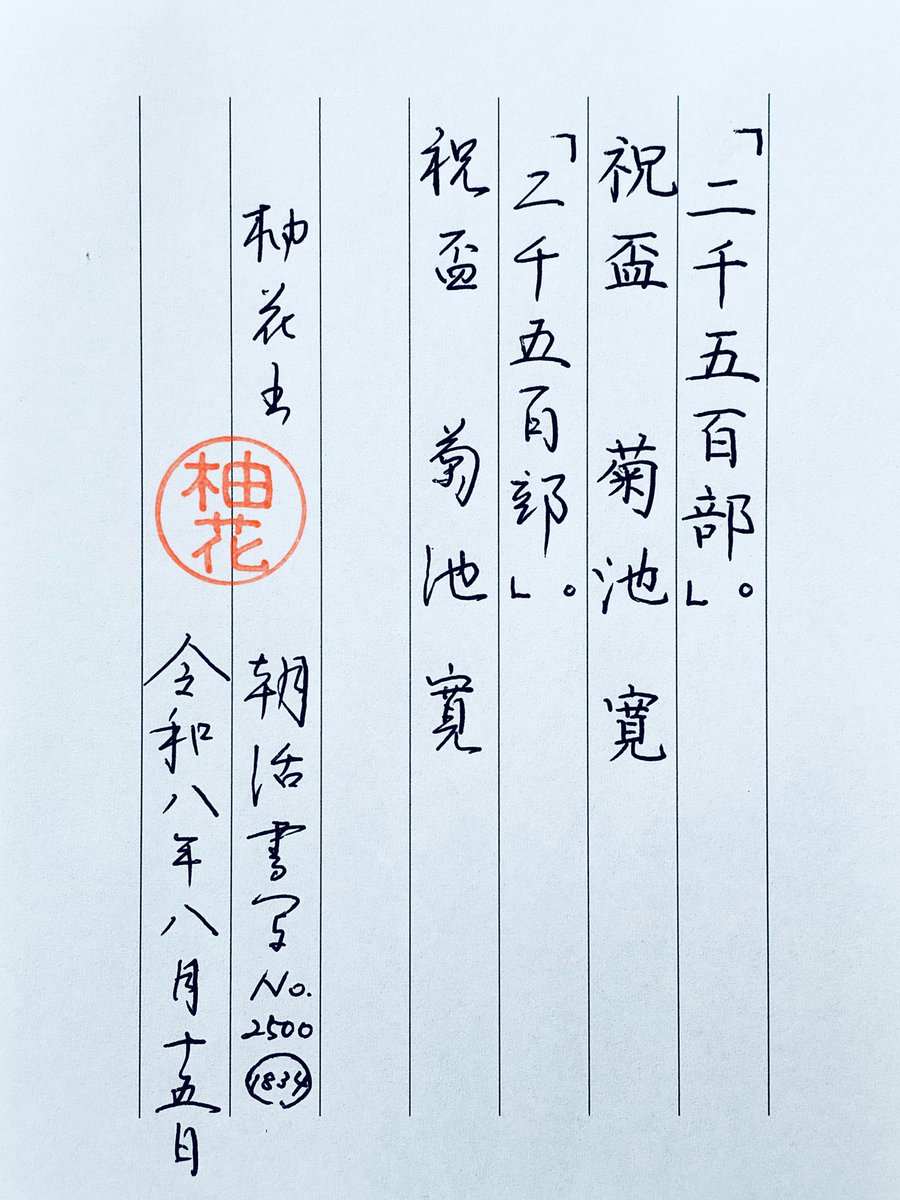 「二千五百部」。
祝盃 菊池 寛
「二千五百部」。
祝盃 菊池 寛
柚花 朝活書写No.2500 1834
柚花
令和八年八月十五日